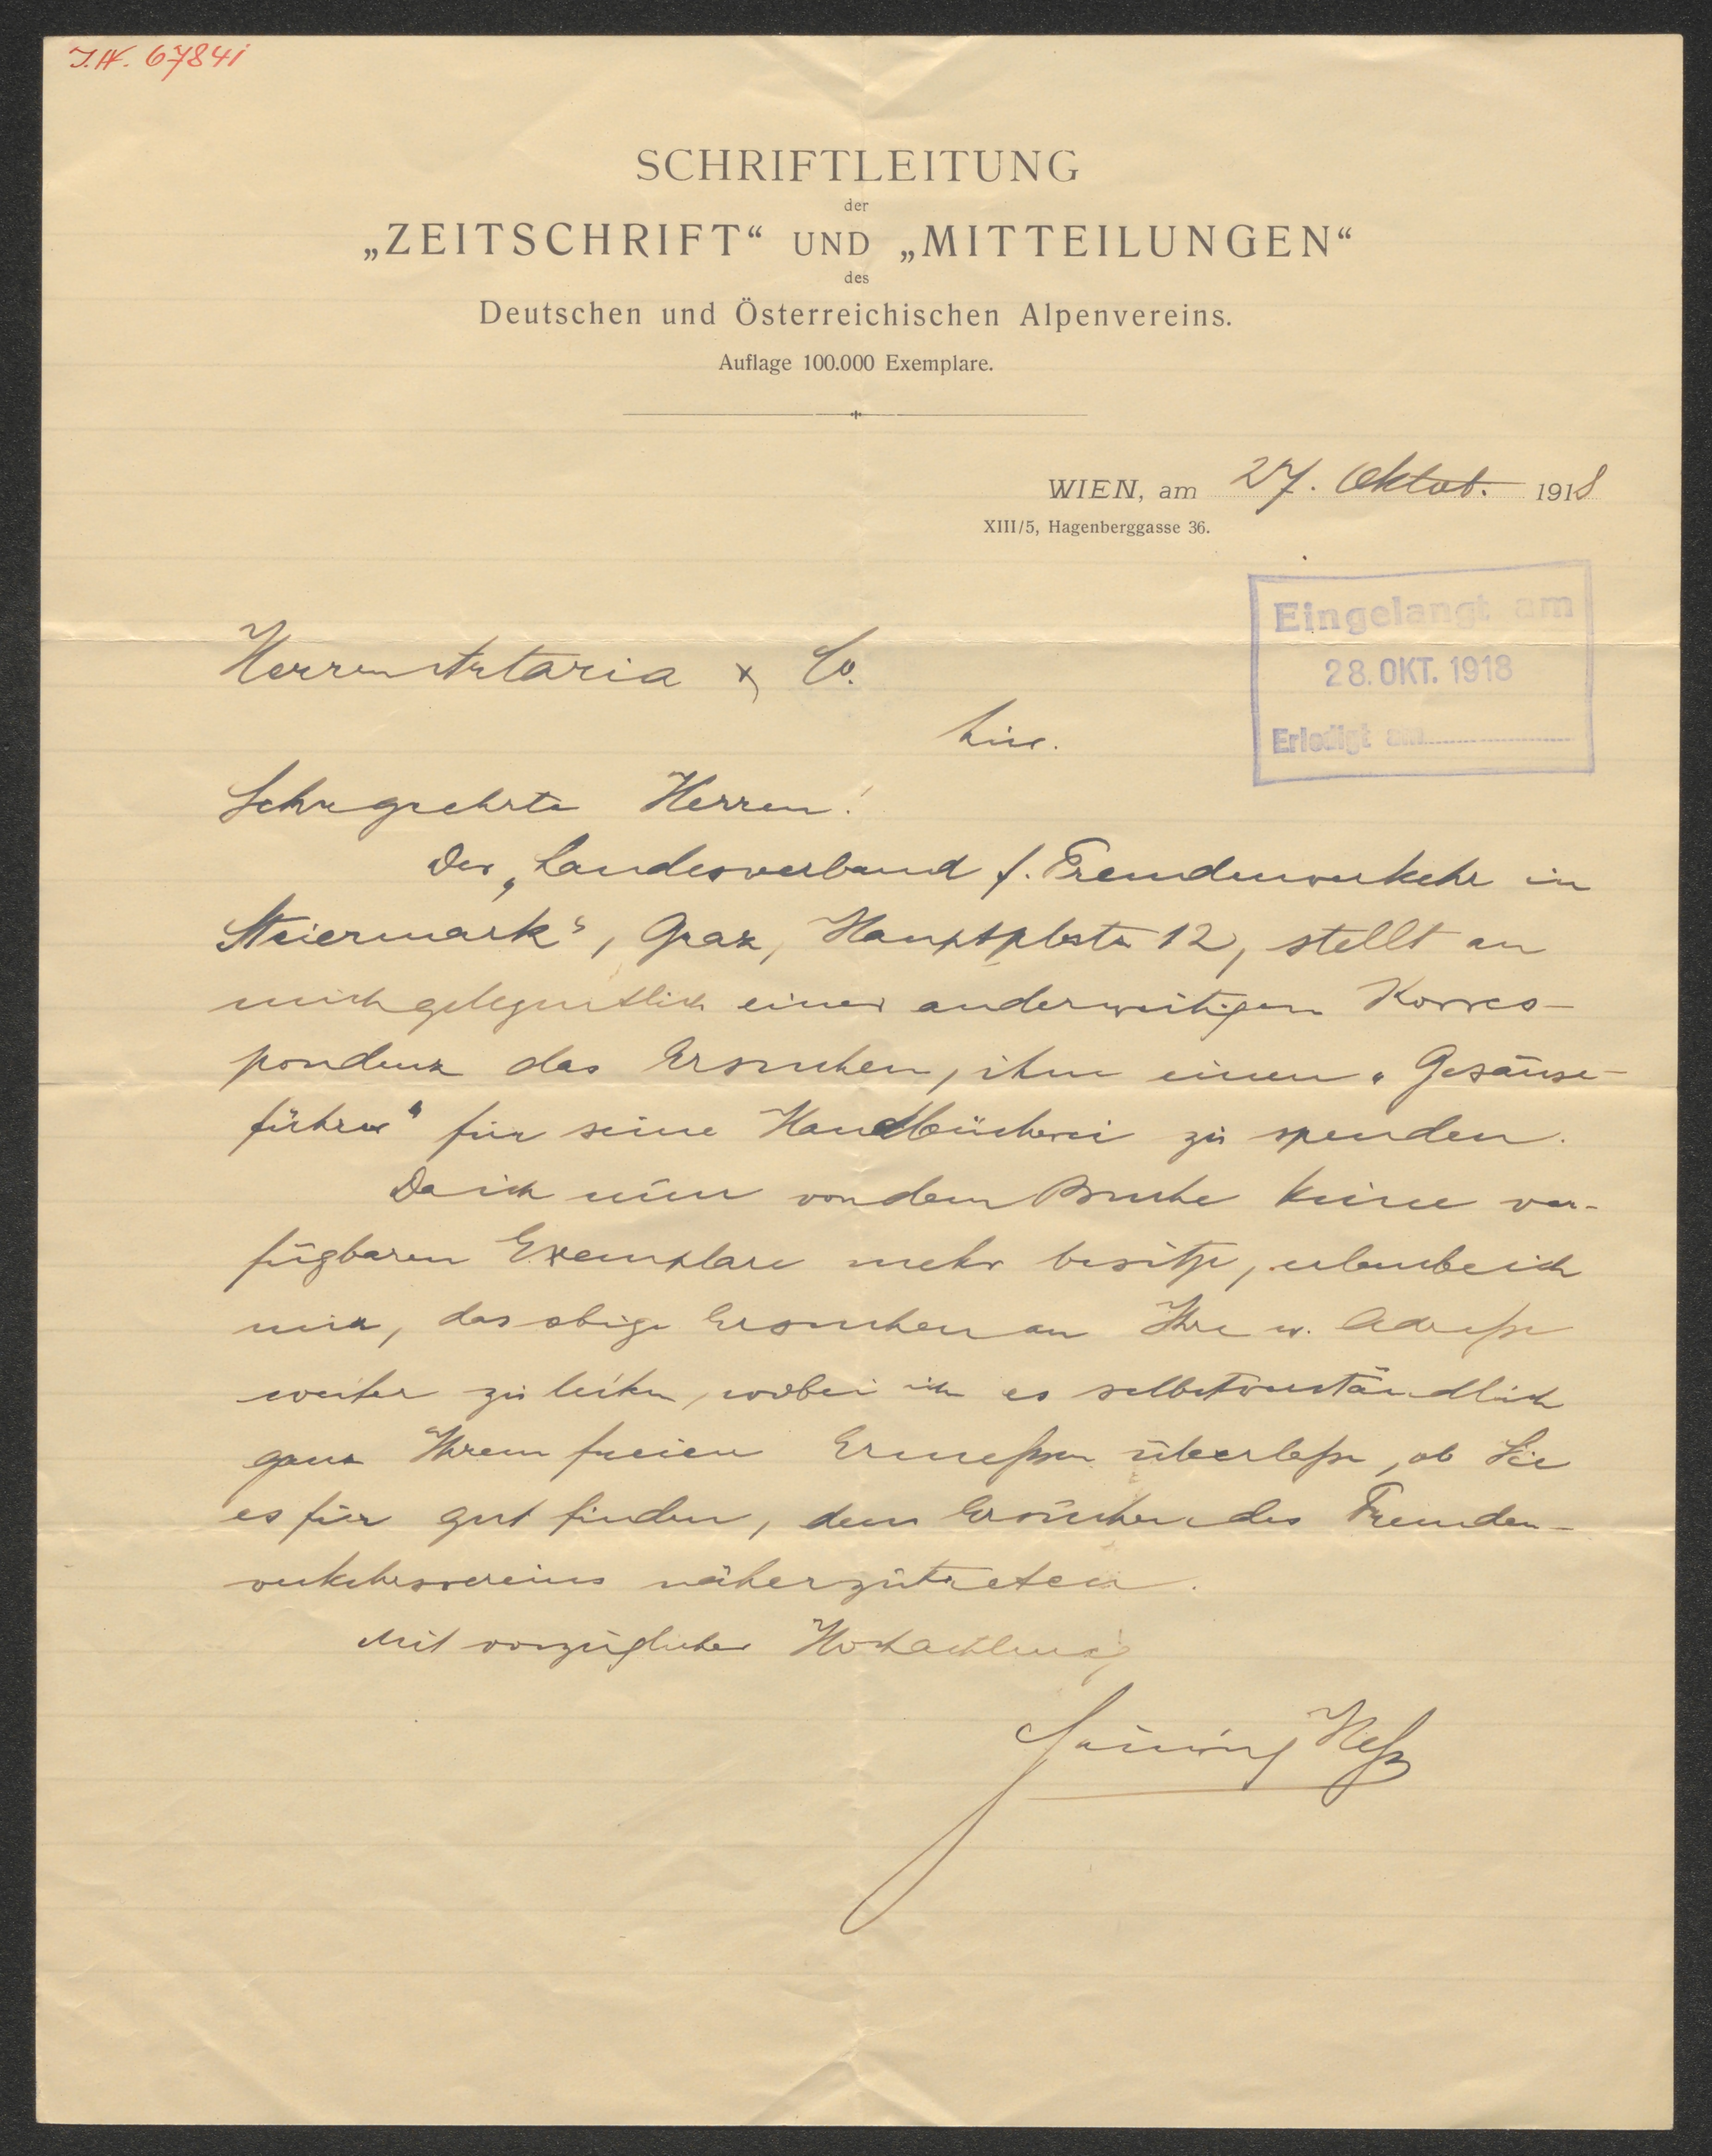 J.N. 67841
SCHRIFTLEITUNG
der
„ZEITSCHRIFT“ UND „MITTEILUNGEN“
des
Deutschen und Österreichischen Alpenvereins.
Auflage 100.000 Exemplare.
WIEN, am 27. Oktob. 1918
XIII/5, Hagenberggasse 36.
Eingelangt am
28. OKT. 1918
Erledigt am
Herren Artaria & Co.
hier.
Sehr geehrte Herren!
Der „Landesverband f. Fremdenverkehr in
Steiermark“, Graz, Hauptplatz 12, stellt an
mich gelegentlich einer anderweitigen Korres-
pondenz das Ersuchen, ihm einen „Gesäuse-
führer“ für seine Handbücherei zu spenden.
Da ich nun von dem Buche keine ver-
fügbaren Exemplare mehr besitze, erlaube ich
mir, das obige Ersuchen an Ihre w. Adresse
weiter zu leiten, wobei ich es selbstverständlich
ganz Ihrem freien Ermeßen überlaße, ob Sie
es für gut finden, dem Ersuchen des Fremden-
verkehrsvereins näherzutreten.
Mit vorzüglicher Hochachtung
Heß